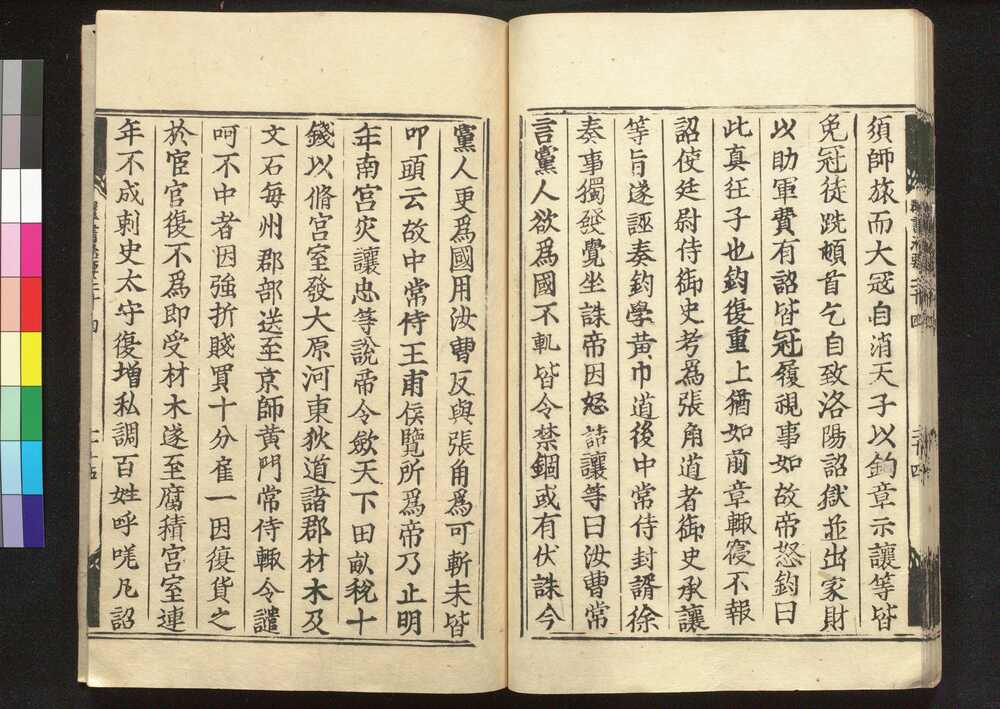 須師旅而大冠自消天子以鈎章示讓等皆
免冠徒跣頓首乞自致洛陽詔獄並出家財
以助軍費有詔皆冠履視事如故帝怒鈎曰
此真狂子也鈎復重上猶如前章輒寑不報
詔使廷尉侍御史考爲張角道者御史承讓
等旨遂誣奏鈎學黄巾道後中常侍封諝徐
奏事獨發覺坐誅帝因怒詰讓等曰汝曹常
言黨人欲爲國不軌皆令禁錮或有伏誅今
黨人更爲國用汝曹反與張角爲可斬未皆
叩頭云故中常侍王甫侯覽所爲帝乃止明
年南宮灾讓忠等說帝令斂天下田畝稅十
錢以脩宮室發大原河東狄道諸郡材木及
文石每州郡部送至京師黄門常侍輒令譴
呵不中者因強折賤買十分雇一因復貨之
於宦官復不爲即受材木遂至腐積宮室連
年不成刺史太守復增私調百姓呼嗟凡詔